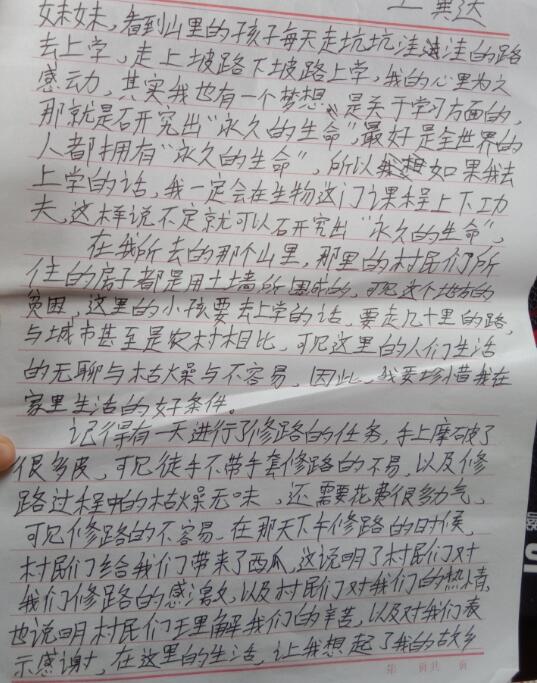 王奥达
妹妹，看到山里的孩子每天走坑坑洼洼的路
去上学，走上坡路下坡路上学，我的心里为之
感动，其实我也有一个梦想，是关于学习方面的，
那就是研究出“永久的生命”，最好是全世界的
人都拥有“永久的生命”，所以我想如果我去
上学的话，我一定会在生物这门课程上下功
夫，这样说不定就可以研究出“永久的生命”，
在我所去的那个山里，那里的村民们所
住的房子都是用土墙所围成的，可见这个地方的
贫困，这里的小孩要去上学的话，要走几十里的路，
与城市甚至是农村相比，可见这里的人们生活
的无聊与枯燥与不容易，因此，我要珍惜我在
家里生活的好条件。
记得有一天进行了修路的任务，手上摩破了
很多皮，可见徒手不带手套修路的不易，以及修
路过程中的枯燥无味，还需要花费很多力气，
可见修路的不容易，在那天下午修路的时候，
村民们给我们带来了西瓜，这说明了村民们对
我们修路的感激，以及村民们对我们的热情，
也说明村民们理解我们的辛苦，以及对我们表
示感谢，在这里的生活，让我想起了我的故乡
第 页共 页